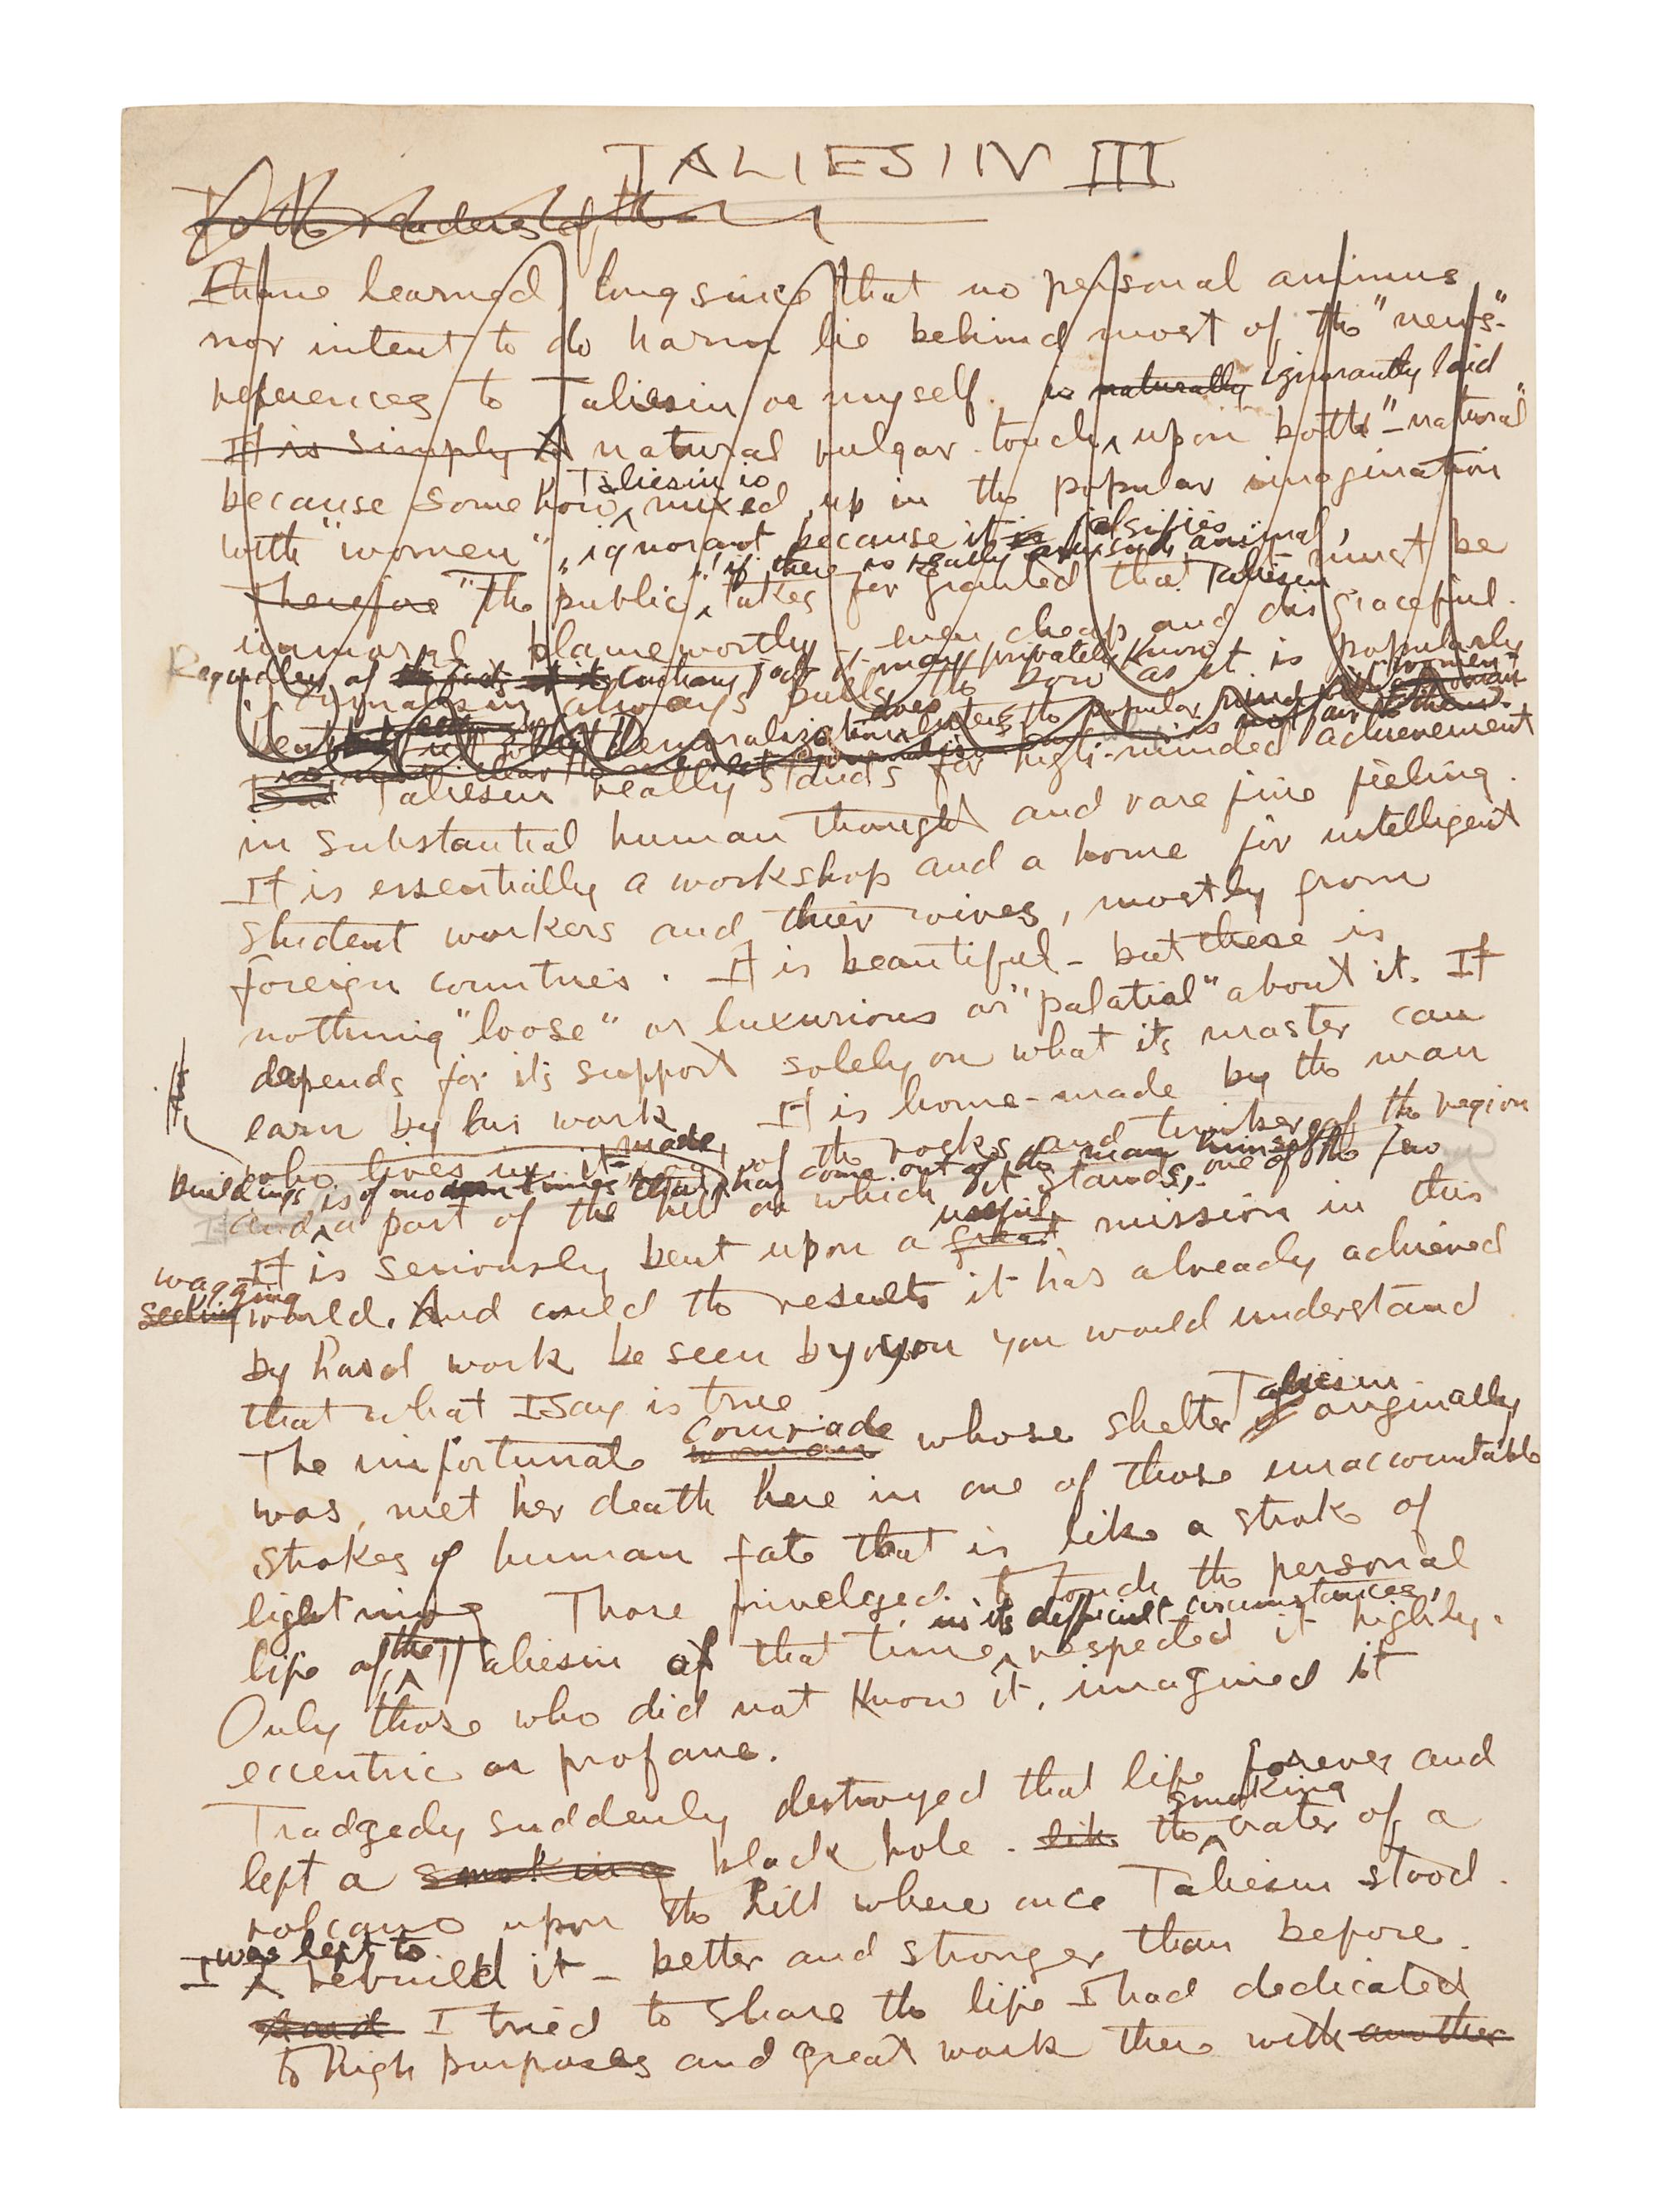 TALIESIN III
To the readers of the
I have learned long since that no personal animus
nor intent to do harm lie behind most of the "news"-
references to Taliesin or myself. is naturally ignorantly laid
It is simply A natural vulgar touch upon both "-natural"
because somehow Taliesin is mixed up in the popular imagination
with "women", ignorant because it is falsifies
Therefore "The public", if there is really any such animal, takes for granted that Taliesin must be
immoral blameworthy - even cheap and disgraceful.
Regardless of contrary fact it may privately know as it is popularly
always pulls the bow
demoralization does the popular mind "women"
But Taliesin really stands for high-minded achievement
in substantial human thought and rare fine feeling.
It is essentially a workshop and a home for intelligent
student workers and thier wives, mostly from
foreign countries. It is beautiful - but there is
nothing "loose" or luxurious or "palatial" about it. It
depends for its support solely on what its master can
earn by his work. It is home-made by the man
who lives in it - made of the rocks and timber of the region
buildings is of modern times that has come out of the man himself
and a part of the hill on which it stands, one of the few
It is seriously bent upon a great useful mission in this
wagging
world. And could the results it has already achieved
by hard work be seen by you you would understand
that what I say is true
The unfortunate woman comrade whose shelter Taliesin originally
was, met her death here in one of those unaccountable
strokes of human fate that is like a stroke of
lightning Those priveleged to touch the personal
life of the Taliesin of that time in its difficult circumstances, respected it highly.
Only those who did not know it, imagined it
eccentric or profane.
Tradgedy suddenly destroyed that life forever and
left a smoking black hole. like the smoking crater of a
volcano upon the hill where once Taliesin stood.
I was left to rebuild it - better and stronger than before.
And I tried to share the life I had dedicated
to high purposes and great work there with another